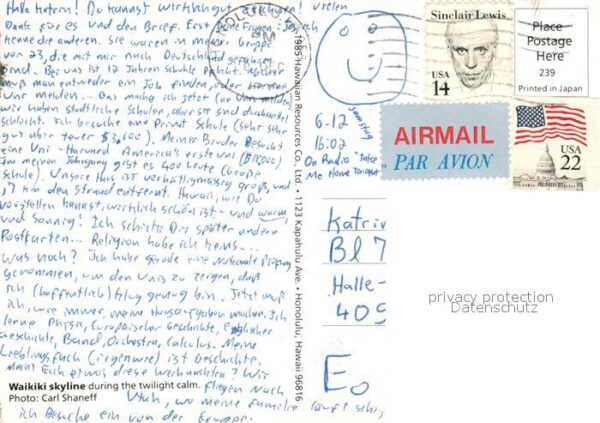 Hallo Katrin! Du kannst wirklich gut zeichnen! Vielen
Dank für es und den Brief. Erst deine Fragen - Ja, ich
kenne die anderen. Sie waren in meiner Gruppe
von 23, die mit mir nach Deutschland gefahren
sind. Bei uns ist 12 Jahren Schule Pflicht. Nachher
muß man entweder ein Job finden, oder
Uni melden. Das mache ich jetzt (an Unis melden)
wir haben städtliche Schulen, aber sie sind durchwegs
schlecht. Ich besuche eine Privat Schule (sehr sehr
gut aber teuer $3,600). Meiner Bruder Besucht
eine Uni - Harvard America's erste Uni ($18,000)
In meinen Jahrgang gibt es 400 Leute (große
Schule). Unsere Haus ist verhältnismäßig groß, und
,7 km den Strand entfernt. Hawaii, wie Du
vorstellen kannst, wirklich schön ist - und warm,
und sonnig! Ich schicke Dir später andern
Postkarten... Religion habe ich keins...
Was noch? Ich habe gerade eine Nationale Prüfung
genommen, um den Unis zu zeigen, daß
ich (hoffentlich) klug genug bin. Jetzt muß
ich, wie immer, meine Hausaufgaben machen. Ich
lerne Physic, Europäischer Geschichte, Englischer
Geschichte, Band, Orchestra, Calculus. Meine
Lieblingsfach (irgenwie) ist Geschichte.
Macht Euch etwas diese Weihnachten? Wir
fliegen nach
Utah, wo meine Familie läuft schi,
ich Besuche ein von der Gruppe.
Waikiki skyline during the twilight calm.
Photo: Carl Shaneff
©1985 Hawaiian Resources Co., Ltd. • 1123 Kapahulu Ave. • Honolulu, Hawaii 96816
PM
Sinclair Lewis
USA
14
Place
Postage
Here
239
Printed in Japan
AIRMAIL
PAR AVION
USA
22
6-12 Samstag
16:02
On Radio "Take
Me Home Tonight"
Katrin
Bl 7
Halle-
409
E.
privacy protection
Datenschutz